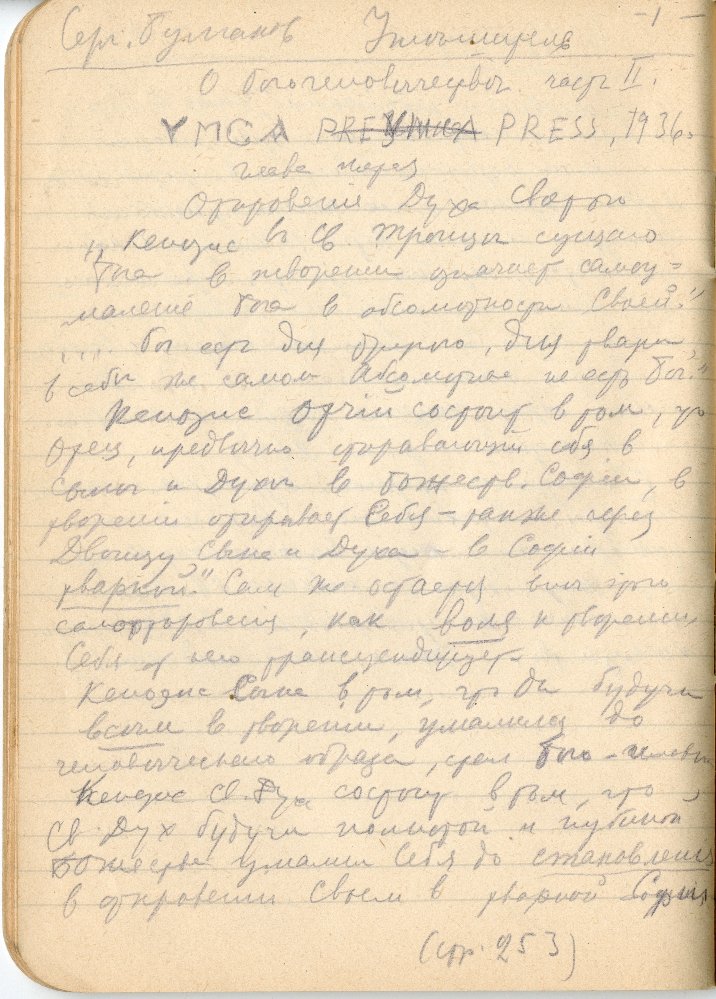 - 1 -
Серг. Булгаков Утешитель
О богочеловечестве часть II.
YMCA PRESS, 1936.
глава
Откровение Духа Святого
„Кенозис во Св. Троице сущаго
Бога в творении означает самоу=
маление Бога в абсолютности Своей."
.... Бог есть для другого, для твари,
в себе же самом Абсолютное не есть Бог."
Кенозис Отчий состоит в том, что
Отец, предвечно открывающий себя в
Сыне и Духе в Божеств. Софии, в
творении открывает Себя – также через
Двоицу Сына и Духа – в Софии
тварной." Сам же остается вне этого
самооткровения, как воля к творению
Себя от него трансцендирует
Кенозис Сына в том, что Он будучи
всем в творении, умалился до
человеческаго образа, стал Бого-человек
Кенозис Св. Духа состоит в том, что
Св. Дух будучи полнотой и глубиной
Божества умалил Себя до становления
в откровении Своем в тварной Софии
(стр. 253)